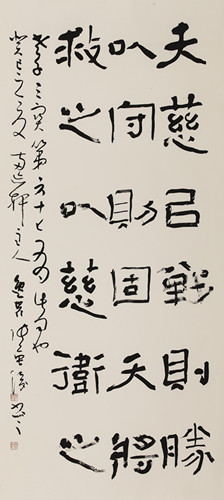 夫慈以戰則勝
以守則固天將
救之以慈衛之
老子三寶第六十七
癸巳之夏 軒主人